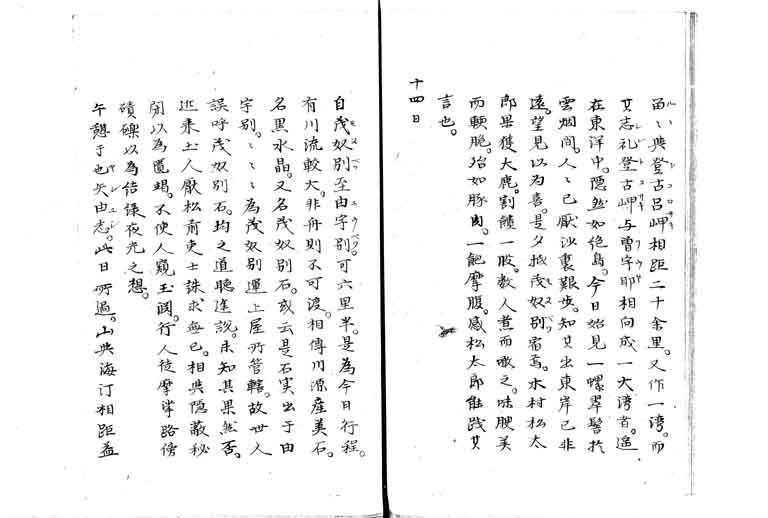 留〻與登古呂岬相距二十余里。又作一湾。而
其志礼登古岬与曽宇耶相向成一大湾者。遥
在東洋中。隠然如絶島。今日始見一螺翠髻於
雲烟間。人〻已厭沙裏艱歩。知其出東岸已非
遠。望見以為喜。是夕抵茂奴別宿焉。木村松太
郎果獲大鹿。割饋一股。数人煮而噉之。味腴美
而輭脆。殆如豚肉。一飽摩腹。感松太郎能践其
言也。
十四日
自茂奴別至由宇別。可六里半。是為今日行程。
有川流較大。非舟則不可渡。相傳川源産美石。
名黒水晶。又名茂奴別石。或云是石実出于由
宇別。〻〻〻為茂奴別運上屋所管轄。故世人
誤呼茂奴別石。均之道聴塗説。未知其果然否。
近来土人厭松前吏士誅求無已。相與隠蔽秘
閉以為匱竭。不使人窺玉潤。行人徒摩挲路傍
磧礫以為結緑夜光之想。
午憩于也矢由志。此日所過。山與海汀相距益